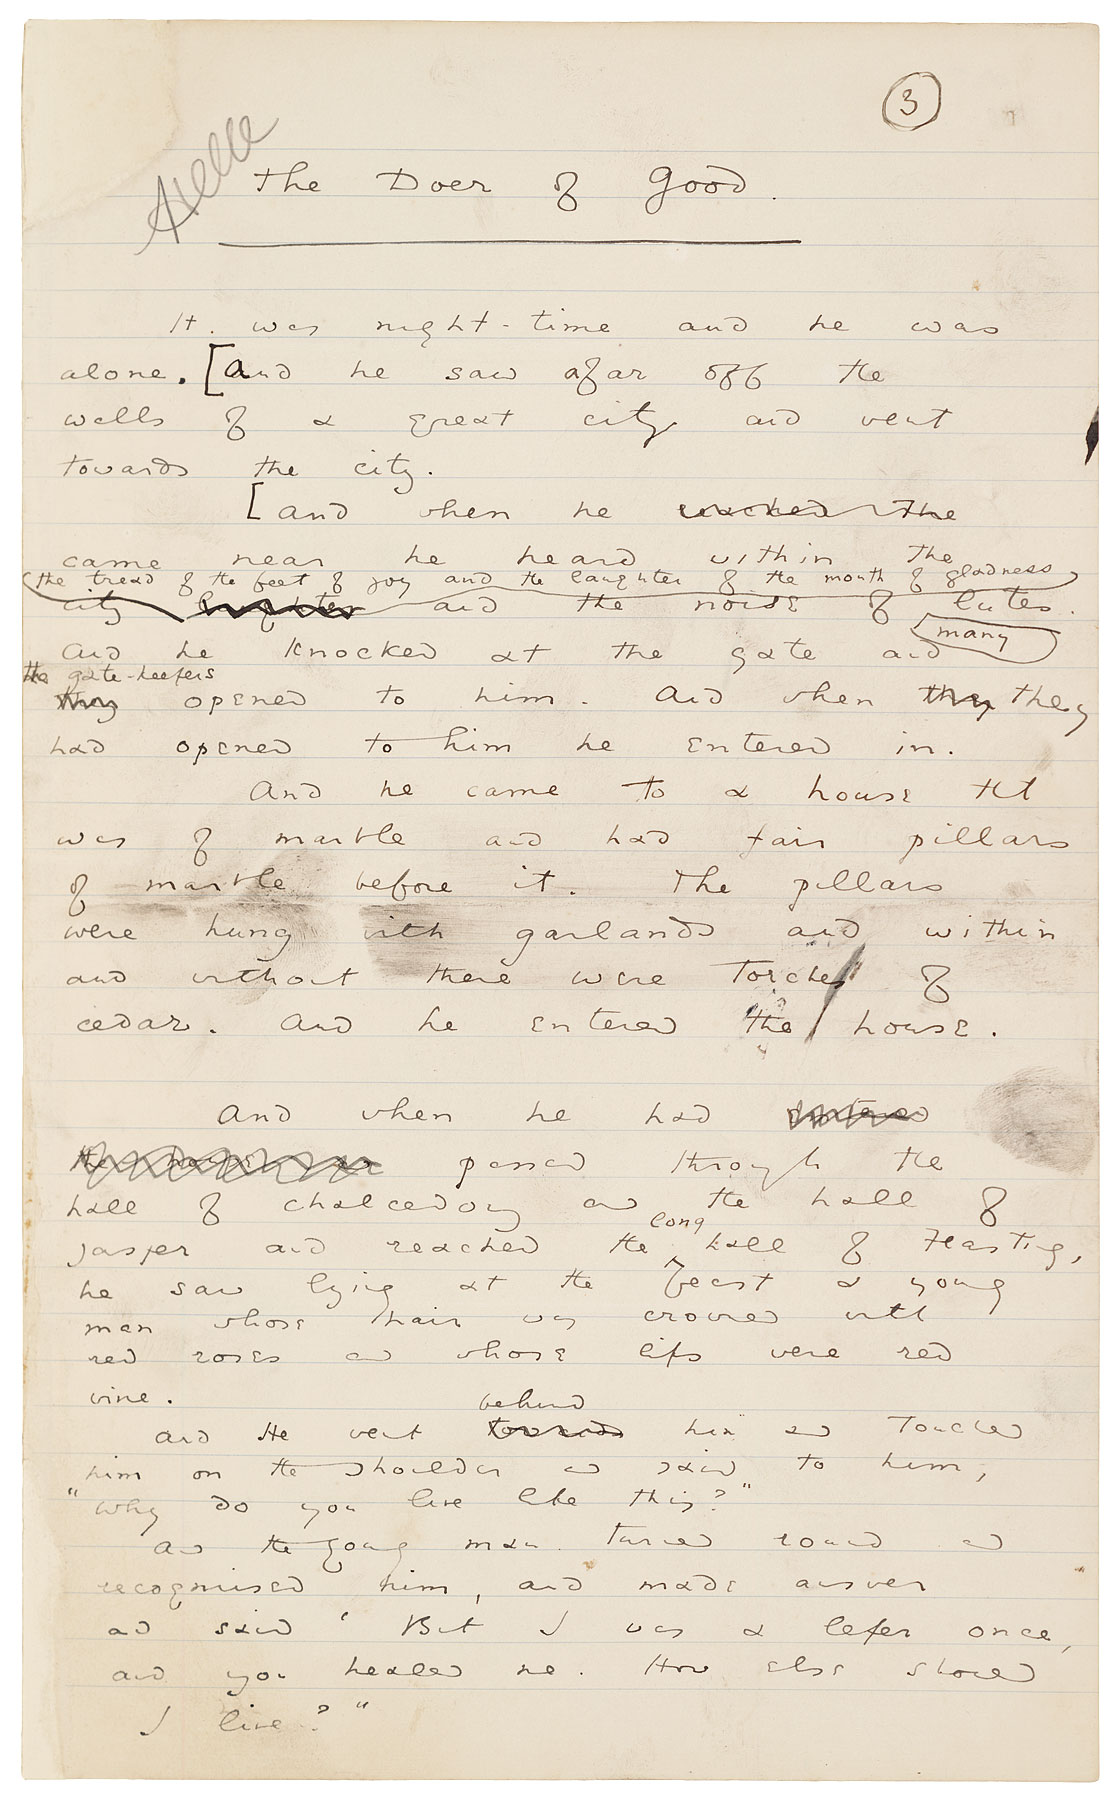 3
Axelle
The Doer of Good.
It was night-time and he was
alone. [And he saw afar off the
walls of a great city and went
towards the city.
[And when he reached the
came near he heard within the
the tread of the feet of joy and the laughter of the mouth of gladness
city laughter and the noise of lutes.
many
And he knocked at the gate and
the gate-keepers
they opened to him. And when they they
had opened to him he entered in.
And he came to a house tht
was of marble and had fair pillars
of marble before it. The pillars
were hung with garlands and within
and without there were torches of
cedar. And he entered the house.
And when he had entered
the house he passed through the
hall of chalcedony and the hall of
long
jasper and reached the ^ hall of feasting,
he saw lying at the feast a young
man whose hair was crowned with
red roses and whose lips were red
wine.
behind
And He went towards him and touched
him on the shoulder and said to him,
"Why do you live like this?"
And the young man turned round and
recognised him, and made answer
and said ' But I was a leper once,
and you healed me. How else should
I live?"